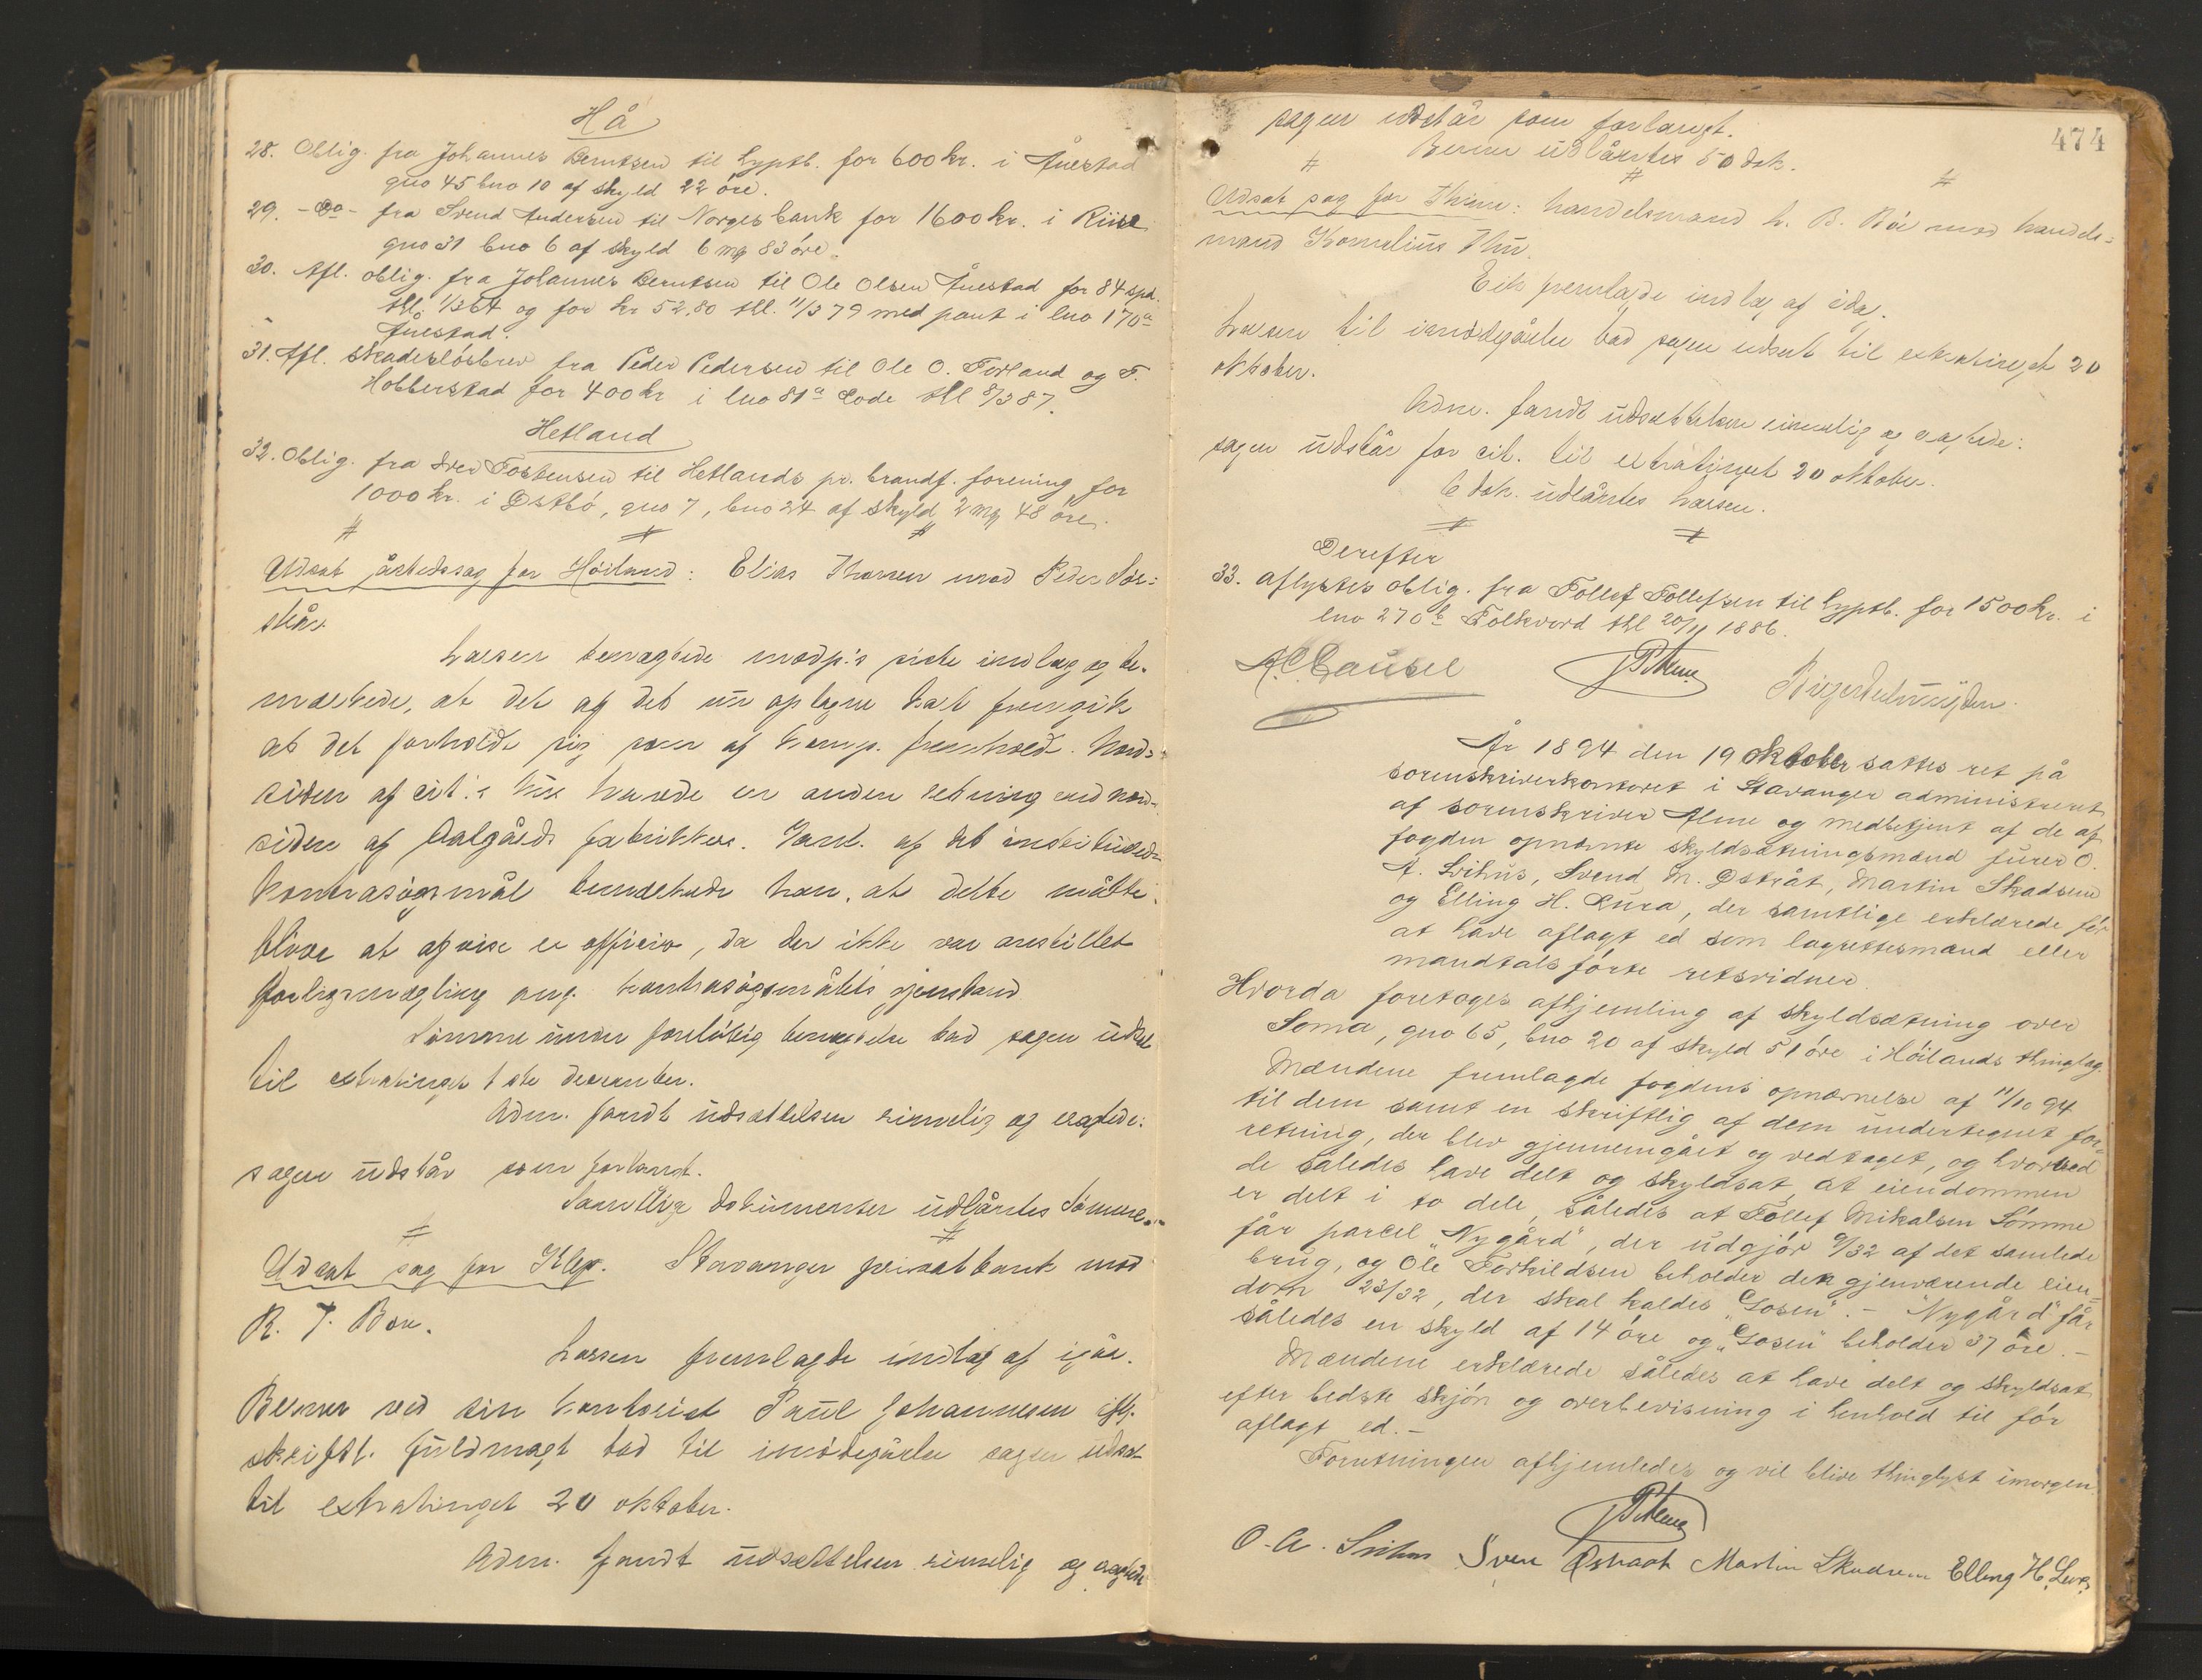 Hå
28. Oblig. fra Johannes Berntsen til hyptb. for 600 kr. i Auestad
gno 45 bno 10 af skyld 22 öre.
29. -Do- fra Svend Andersen til Norges bank for 1600 kr. i Riise
gno 31 bno 6 af skyld 6 mrk 83 öre.
30. Afl. oblig. fra Johannes Berntsen til Ole Olsen Auestad for 84 spd.
thl. 1/3 64 og for kr 52,80 thl. 11/3 79 med pant i lno 170a
Auestad.
31. Afl. skadeslösbrev fra Peder Pedersen til Ole O. Torland og T.
Hobberstad for 400 kr i lno 81a Lode thl 8/3 87.
Hetland
32. Oblig. fra Torstensen til Hetlands pr. brandf. forening for
1000 kr. i Östbö, gno 7, bno 24 af skyld 2 mrk 48 öre.
Udsat åstedssag for Höiland: Elias Thorsen mod Peder Sör=
skår.
Larsen benægtede modp.s sidste indlæg og be-
mærkede, at det af det nu oplagne kart fremgik
at det forholdt sig som af komp. fremholdt. Nord=
siden af cit.s hus havde en anden retning end nord-
siden af Aalgårds fabrikker. Janl. af det instituerede
kontrasögsmål bemærkede han, at dette måtte
blive at afvise ex officio, da der ikke var anstillet
forligsmægling ang. kontrasögsmålets gjenstand
Sömme under foreløbig benægtelse bad sagen udsat
til extratinget 1ste december.
Adm. fandt udsættelsen rimelig og eragtede:
sagen udstår som forlangt.
Samtlige dokumenter udlåntes Sömme.
Udsat sag for Klep. Stavanger privatbank mod
R. T. Bore.
Larsen fremlagde indlæg af igår.
Berner ved sin kontorist Paul Johannesen ifl.
skriftl. fuldmagt bad til imödegåelse sagen udsat
til extratinget 20 oktober.
Adm. fandt udsættelsen rimelig og eragtede
474
sagen udstår som forlangt.
Berner udlåntes 50 dok.
Udsat sag for Thime: handelsmand L. B. Bö mod handels=
mand Kornelius Thu.
Eik fremlagde indlæg af idag.
Larsen til imödegåelse bad sagen udsat til extratinget 20
oktober.
Adm. fandt udsættelsen rimelig og eragtede:
sagen udstår for cit. til extratinget 20 oktober.
6 dok. udlåntes Larsen.
Derefter
33. aflystes oblig. fra Tollef Tollefsen til hyptb. for 1500 kr. i
lno 270b Folkvord thl 20/11 1886.
År 1894 den 19 oktober sattes ret på
sorenskriverkontoret i Stavanger administreret
af sorenskriver Alme og medbetjent af de af
fogden opnævnte skyldsætningsmænd furer O.
A. Svihus, Svend M. Östråt, Martin Skadsem
og Elling H. Lura, der samtlige erklærede för
at have aflagt ed som lagrettesmænd eller
mandtalsförte retsvidner.
Hvorda foretoges afhjemling af skyldsætning over
Soma, gno 65, bno 20 af skyld 51 öre i Höilands thinglag.
Mændene fremlagde fogdens opnævnelse af 11/10 94
til dem samt en skriftlig af dem undertegnet for-
retning, der blev gjennemgået og vedtaget, og hvorved
de således have delt og skyldsat, at eiendommen
er delt i to dele, således at Tollef Mikalsen Sömme
får parcel „Nygård“, der udgjör 9/32 af det samlede
brug, og Ole Torkildsen beholder den gjenværende eien-
dom 23/32, der skal kaldes „Losen“. - „Nygård“ får
således en skyld af 14 öre og „Losen“ beholder 37 öre. -
Mændene erklærede således at have delt og skyldsat
efter bedste skjön og overbevisning i henhold til för
aflagt ed. -
Forretningen afhjemledes og vil blive thinglyst imorgen.
O. A. Svihus Sven Östraat Martin Skadsem Elling H. Lura